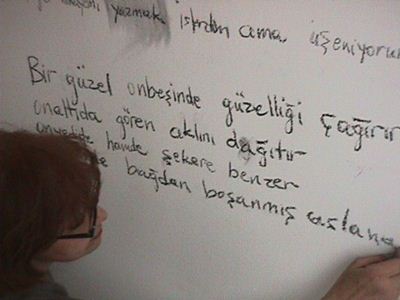 yazmak isterdim ama üşeniyorum
Bir güzel onbeşinde güzelliği çağırır
onaltıda gören aklını dağıtır
onyedide hamde şekere benzer
bağdan boşanmış aslana